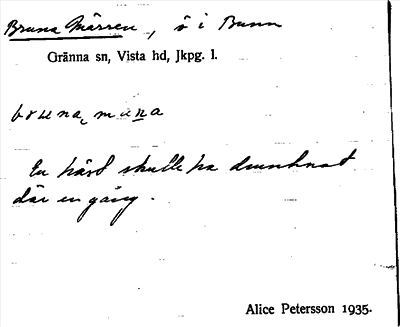 Bruna Märren, ö i Bunn
Gränna sn, Vista hd, Jkpg. l.
En häst skulle ha drunknat
där en gång.
Alice Petersson 1935.